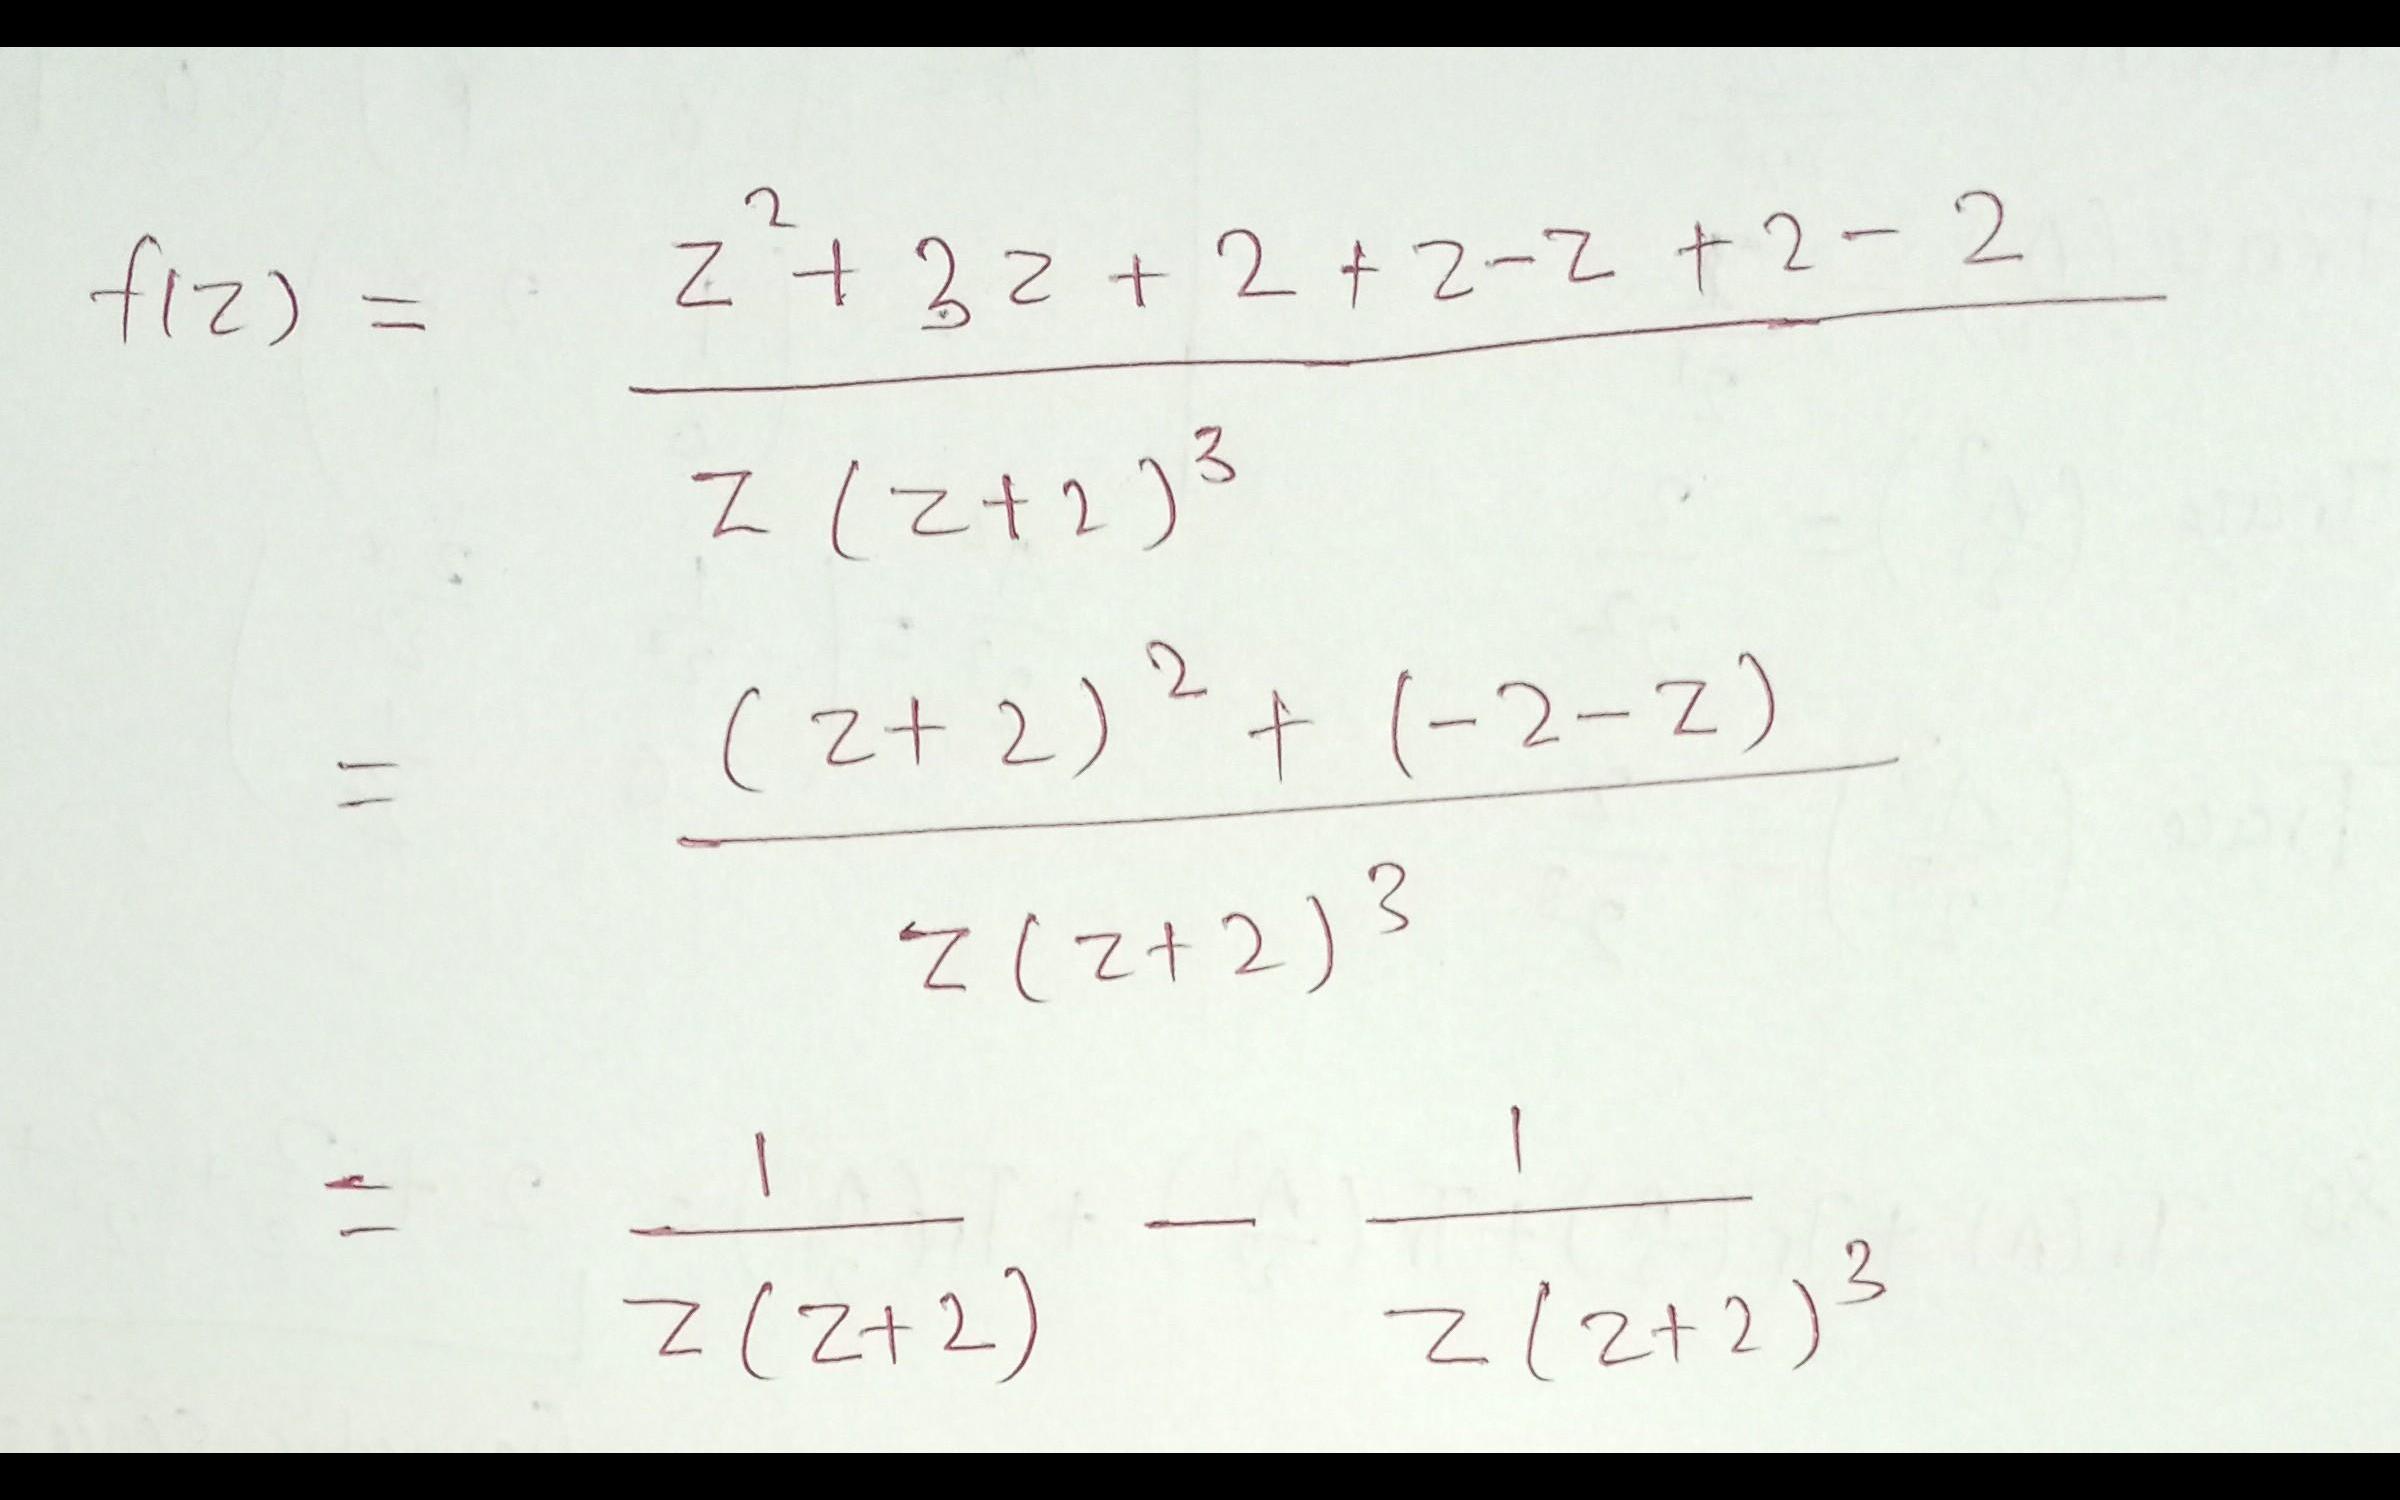 f(z) = z² + 3z + 2 + z - z + 2 - 2
z (z+2)³
= (z+2)² + (-2-z)
z(z+2)³
= 1 — 1
z(z+2) z(z+2)³